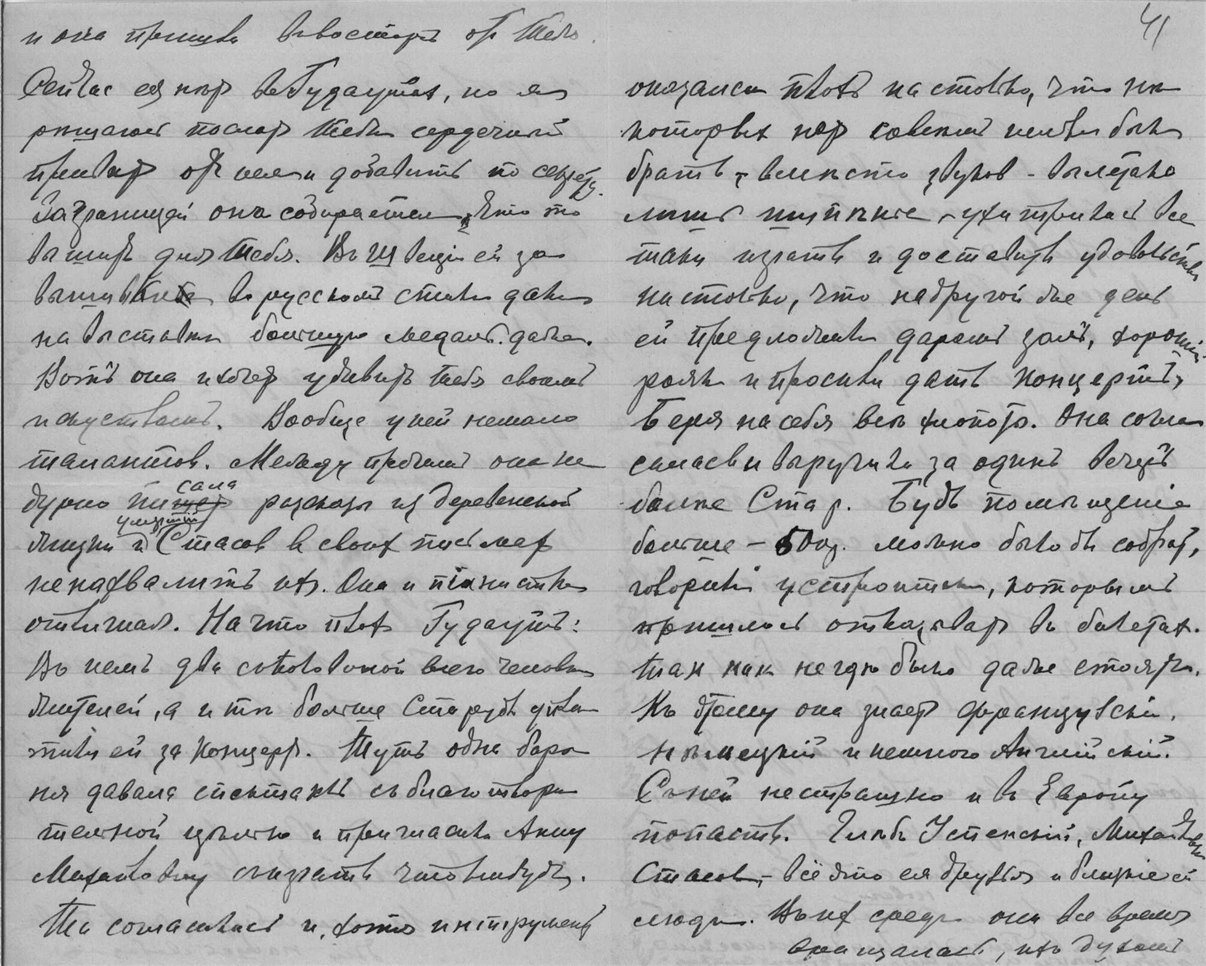 и она пришла въ восторгъ отъ Тебя.
Сейчас ея нѣтъ въ Гудаутах, но я
рѣшаюсь послать Тебѣ сердечный
привѣтъ отъ нея и добавить по секрету.
За границей она собирается что то
вышить для Тебя. Въ Швеціи ей за
вышиванье въ русском стилѣ дали
на выставкѣ большую медаль. даже.
Вотъ она и хочет удивить Тебя своимъ
искуством. Вообще у ней немало
талантов. Между прочимъ она не
дурно писала разсказы из деревенской
жизни и Стасов в своих письмах
не нахвалитъ их. Она и піанистка
отличная. На что плох Гудаутъ:
Въ нем два с половиной всего человѣка
жителей, а и то больше ста рублей упла
тили ей за концерт. Тутъ одна баро
ня давала спектакль съ благотвори
тельной цѣлью и пригласила Анну
Михайловну сыграть что нибудь.
Та согласилась и, хотя инструментъ
41
оказался плохъ настолько, что нѣ
которых нот совсем нельзя было
брать, вмѣсто звуков вылетало
лишь шипѣние, ухитрилась все
таки играть и доставить удовольствие
настолько, что на другой же день
ей предложили даромъ залъ, хорошій
рояль и просили дать концертъ,
беря на себя все хлопоты. Она согла
силась и выручила за один вечеръ
более Ста р. Будь помѣщеніе
больше – 500 р. можно было бы собрать,
говорили устроители, которымъ
пришлось отказывать въ билетах.
так как негдѣ было даже стоять.
Къ тому она знает французскій,
нѣмецкій и немного Англійскій.
С ней не страшно и въ Европу
попасть. Глѣбъ Успенскій, Михайловскій
Стасов, – всё это ея друзья и близкіе ей
люди. В их средѣ она все время
вращалась, ихъ духом